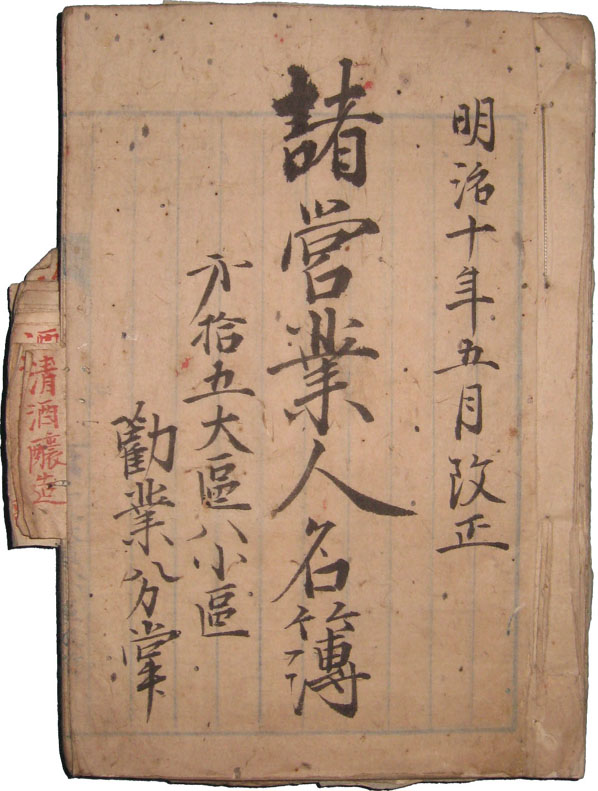 明治十年五月改正
諸営業人名簿
㐧拾五大區八小區
勸業分掌
酒
清酒醸造